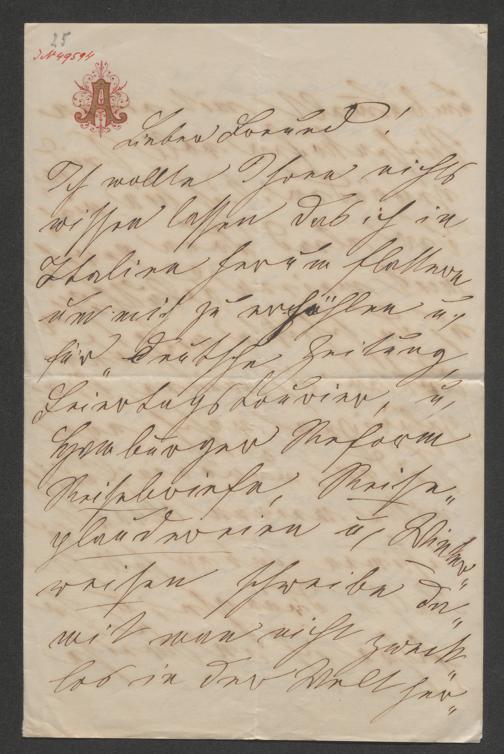 25
J.N. 49594
A
Lieber Freund!
Ich wollte Ihnen nichts
wissen lassen das ich in
Italien herum flattere
um mich zu u.
für „Deutsche Zeitung,
Feiertagskourier, u,
Hamburger Reform
Reisebriefe, Reise„
plaudereien u, Winter„
reisen schreibe da„
mit man nicht zweck
los in der Welt her„